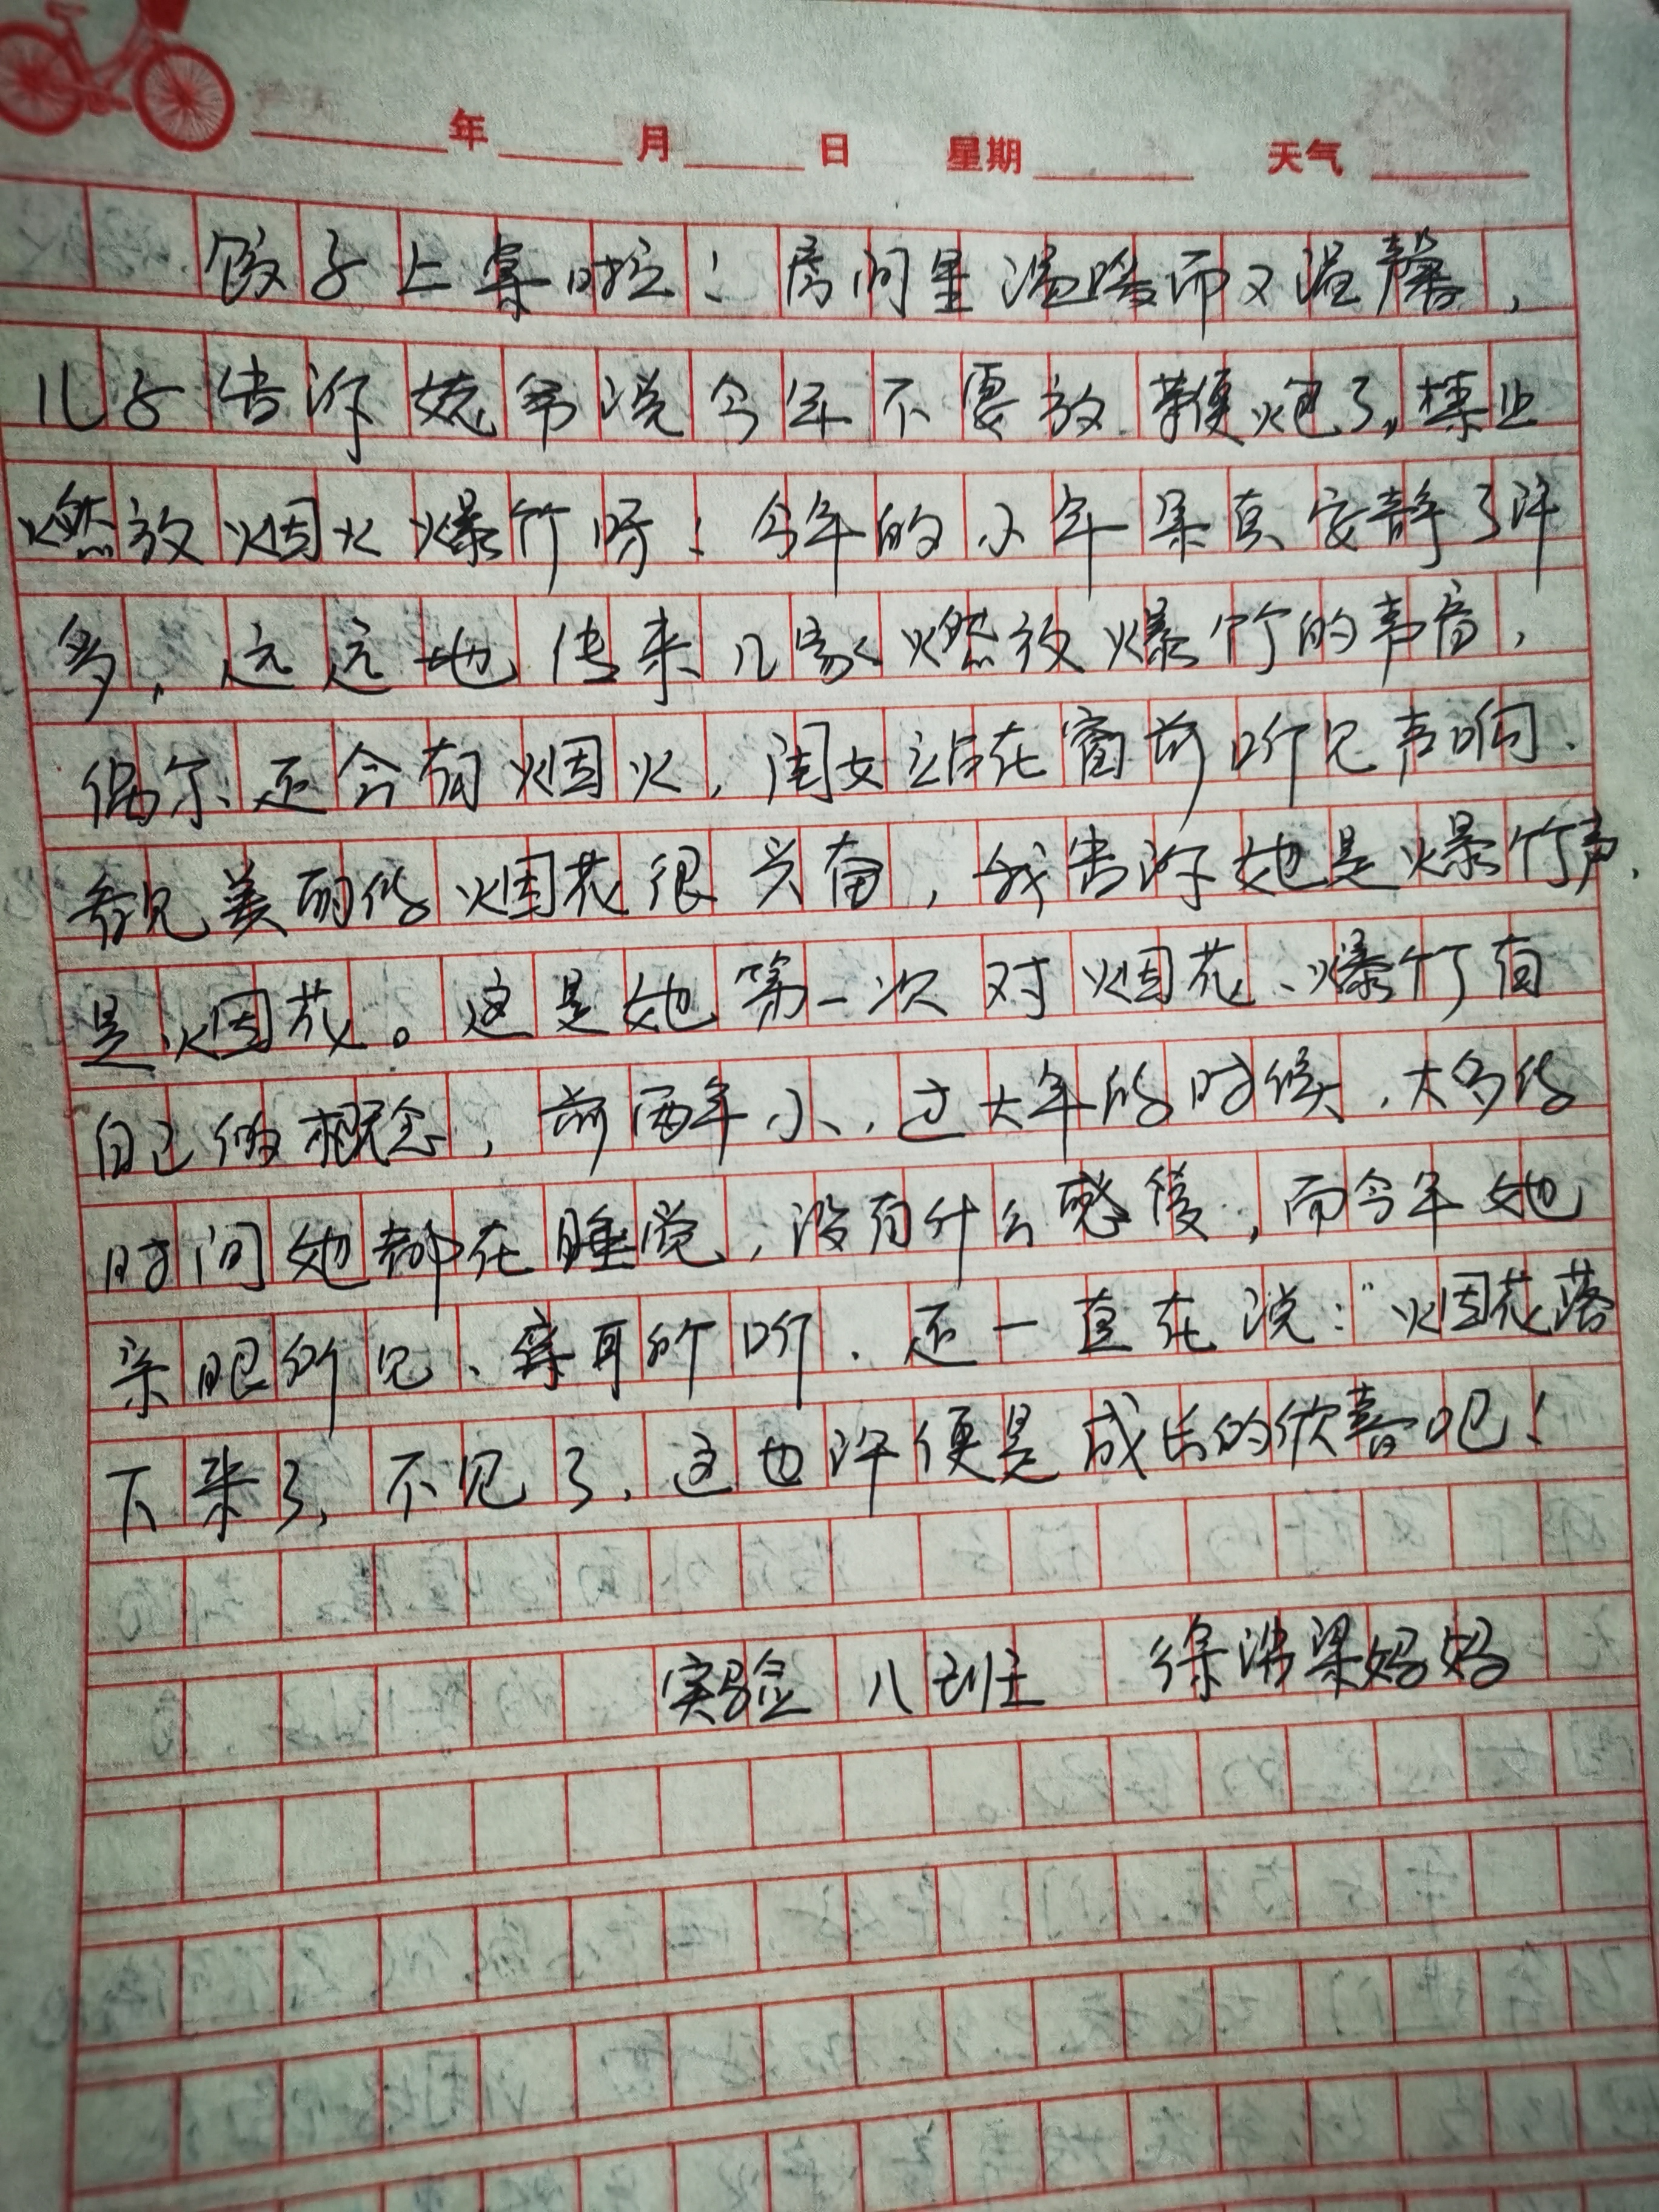 年 月 日 星期 天气
饺子上桌啦！房间里温暖而又温馨，
儿子告诉姥爷说今年不要放鞭炮了，禁止
燃放烟火爆竹呀！今年的小年果真安静了许
多，远远地传来几家燃放爆竹的声音，
偶尔还会有烟火，闺女站在窗前听见声响.
看见美丽的烟花很兴奋，我告诉她是爆竹声.
是烟花。这是她第一次对烟花、爆竹有
自己的概念，前两年小，过大年的时候，大多的
时间她都在睡觉，没有什么感受，而今年她
亲眼所见、亲耳所听.还一直在说："烟花落
下来了，不见了.这也许便是成长的欣喜吧！
实验八班 徐浩梁妈妈